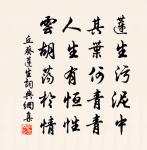 蓮生污泥中
其葉何青青
人生有恒性
雲胡蕩於情
丘葵蓮生詞